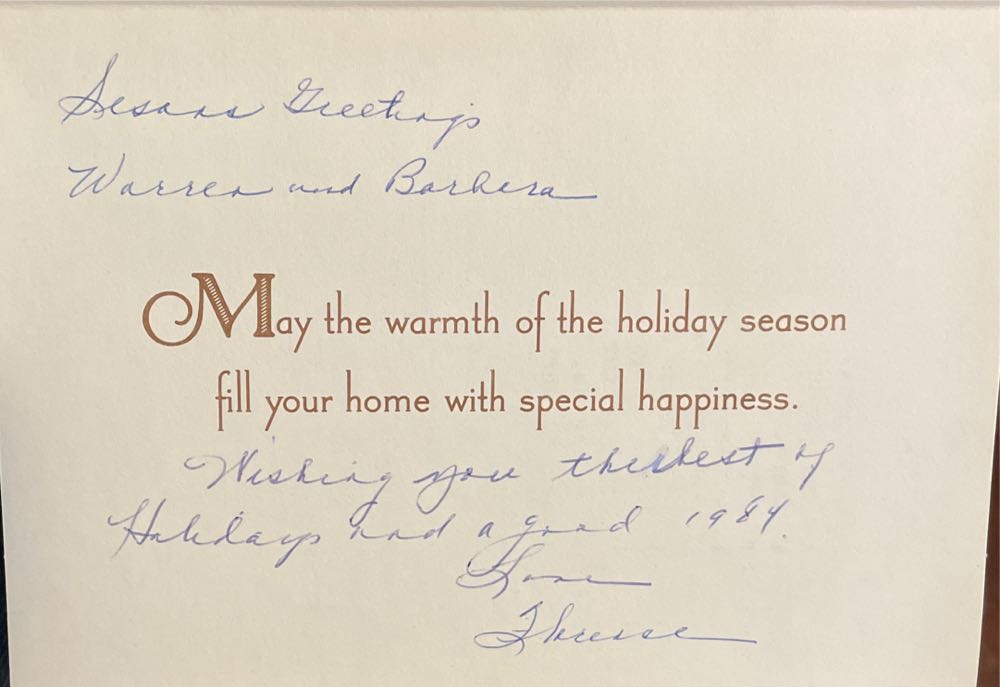 Sesons Greetings
Warren and Barbera
May the warmth of the holiday season
fill your home with special happiness.
Wishing you the best of
Holidays and a good 1984.
Love
Therese